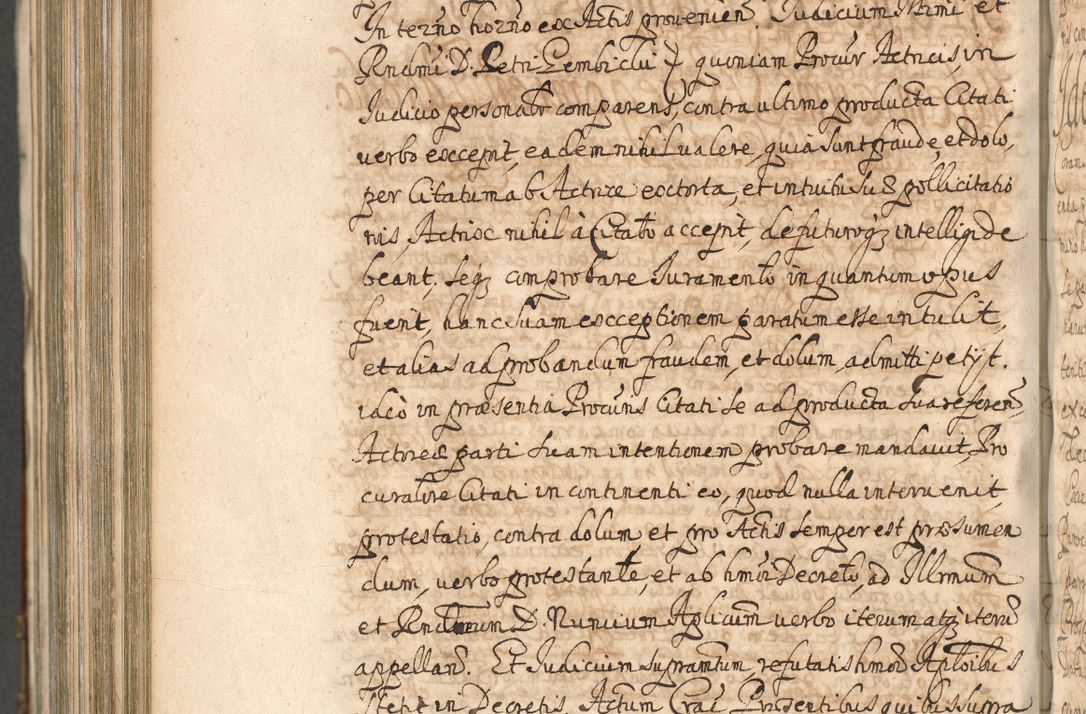 In termo horno ex Actis provenien. Judicium Illmi et
Rndmi D. Petri Gembicki quoniam Procur Actricis, in
Judicio personalr comparens, contra ultimo producta Citati
verbo excepit, eadem nihil valere, quia sunt fraude, et dolo,
per Citatum ab Actrice extorta, et intuitu suæ pollicitatio
nis, Actrix nihil à Citato accepit, de futuroq intelligi de
beant, seq comprobare Juramento in quantum opus
fuerit, hanc suam exceptionem paratum esse intulit,
et alias ad probandum fraudem, et dolum, admitti petijt.
ideò in præsentia Procuris Citati se ad producta sua referen,
Actoreæ parti suam intentionem probare mandavit, Pro
curatore Citati in continenti eo, quod nulla intervenit
protestatio, contra dolum et pro Actis semper est præsumen
dum, verbo protestante, et ab hmoi Decreto, ad Illrmum
et Rndmum D. Nuncium Aplicum verbo iterum atq iteru
appellan. Et Judicium supramtum, refutatis hmoi Aplõibus
stetit in Decretis, Actum Crac Præsentibus quibus supra